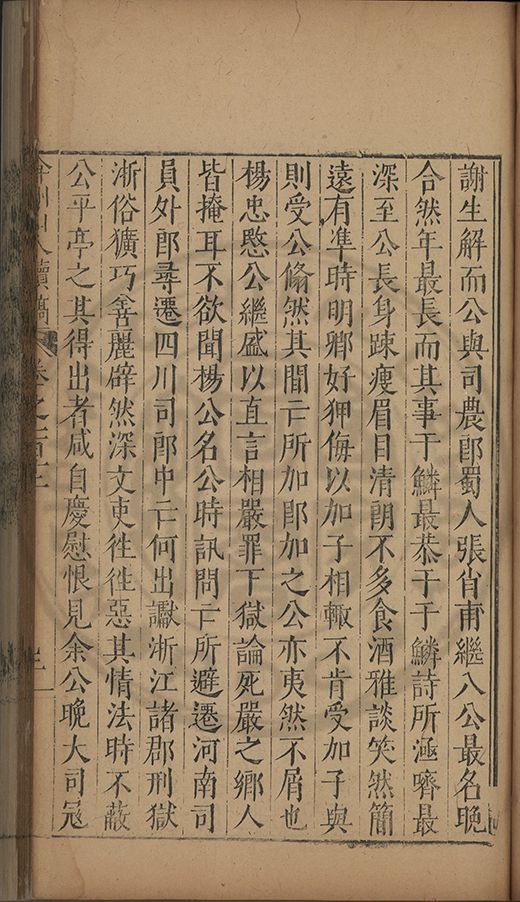 謝生解而公與司農郎蜀人張省甫繼入公最名晚
合然年最長而其事于鱗最恭于于鱗詩所涵嚌最
深至公長身踈瘦眉目清朗不多食酒雅談笑然簡
遠有準時明卿好狎侮以加子相輙不肯受加子與
則受公翛然其間亡所加郎加之公亦夷然不屑也
楊忠愍公繼盛以直言相嚴罪下獄論死嚴之鄉人
皆掩耳不欲聞楊公名公時訊問亡所避遷河南司
員外郎尋遷四川司郎中亡何出讞浙江諸郡刑獄
浙俗獷巧舍麗辟然深文吏徃徃惡其情法時不蔽
公平亭之其得出者咸自慶慰恨見余公晚大司冦
弇州山人續稿 卷之一百十二